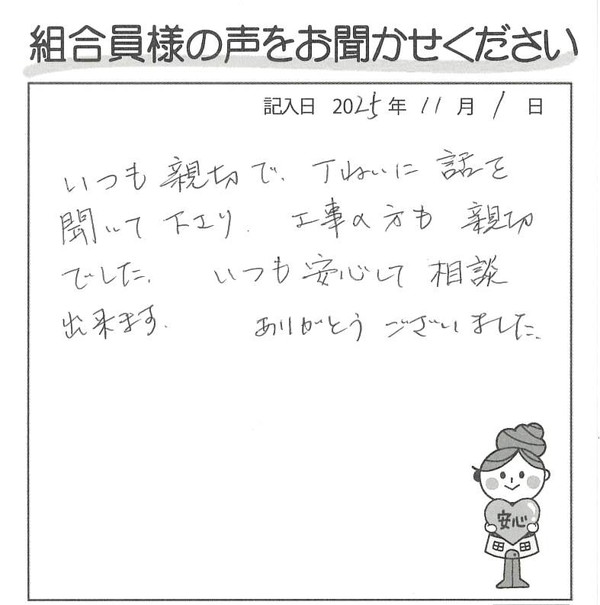 組合員様の声をお聞かせください
記入日 2025年 11月 1日
いつも 親切で、丁ねいに 話を
聞いて 下さり、 工事の方も 親切
でした。 いつも 安心して 相談
出来ます。 ありがとう ございました。
安心